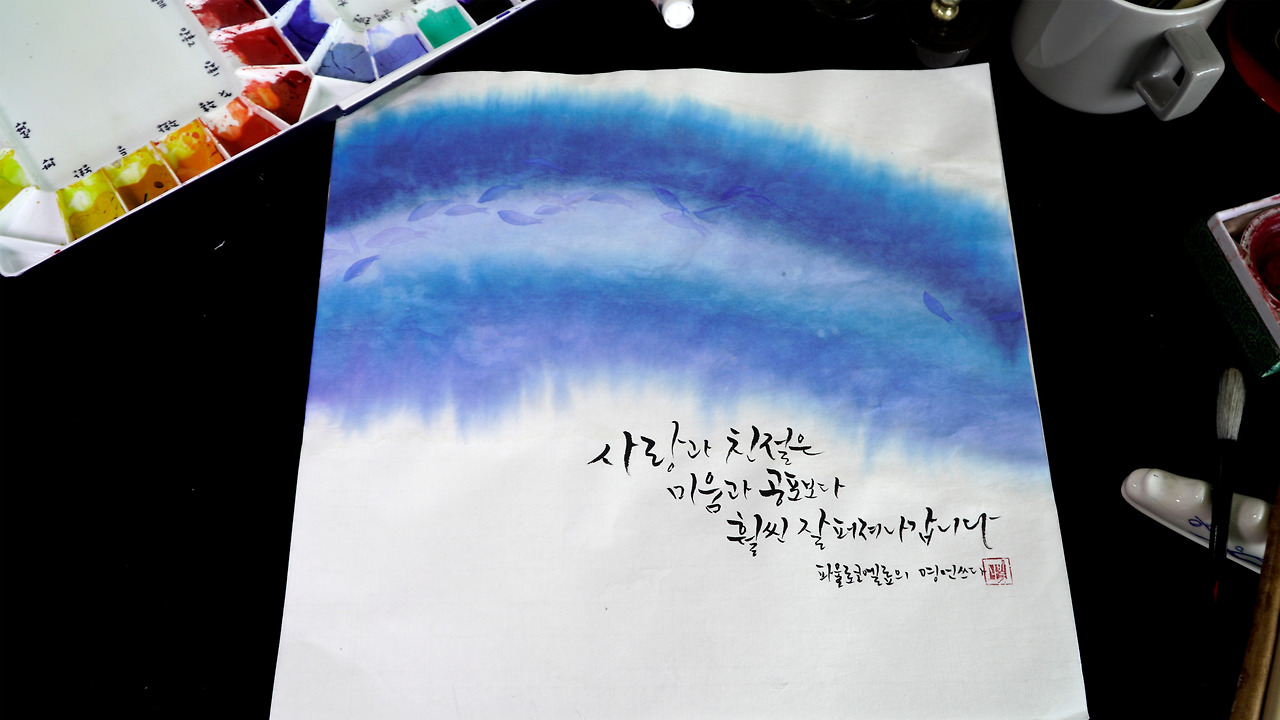 사랑과 친절은
미움과 공포보다
훨씬 잘 퍼져나갑니다
파울로코엘료의 명언쓰다